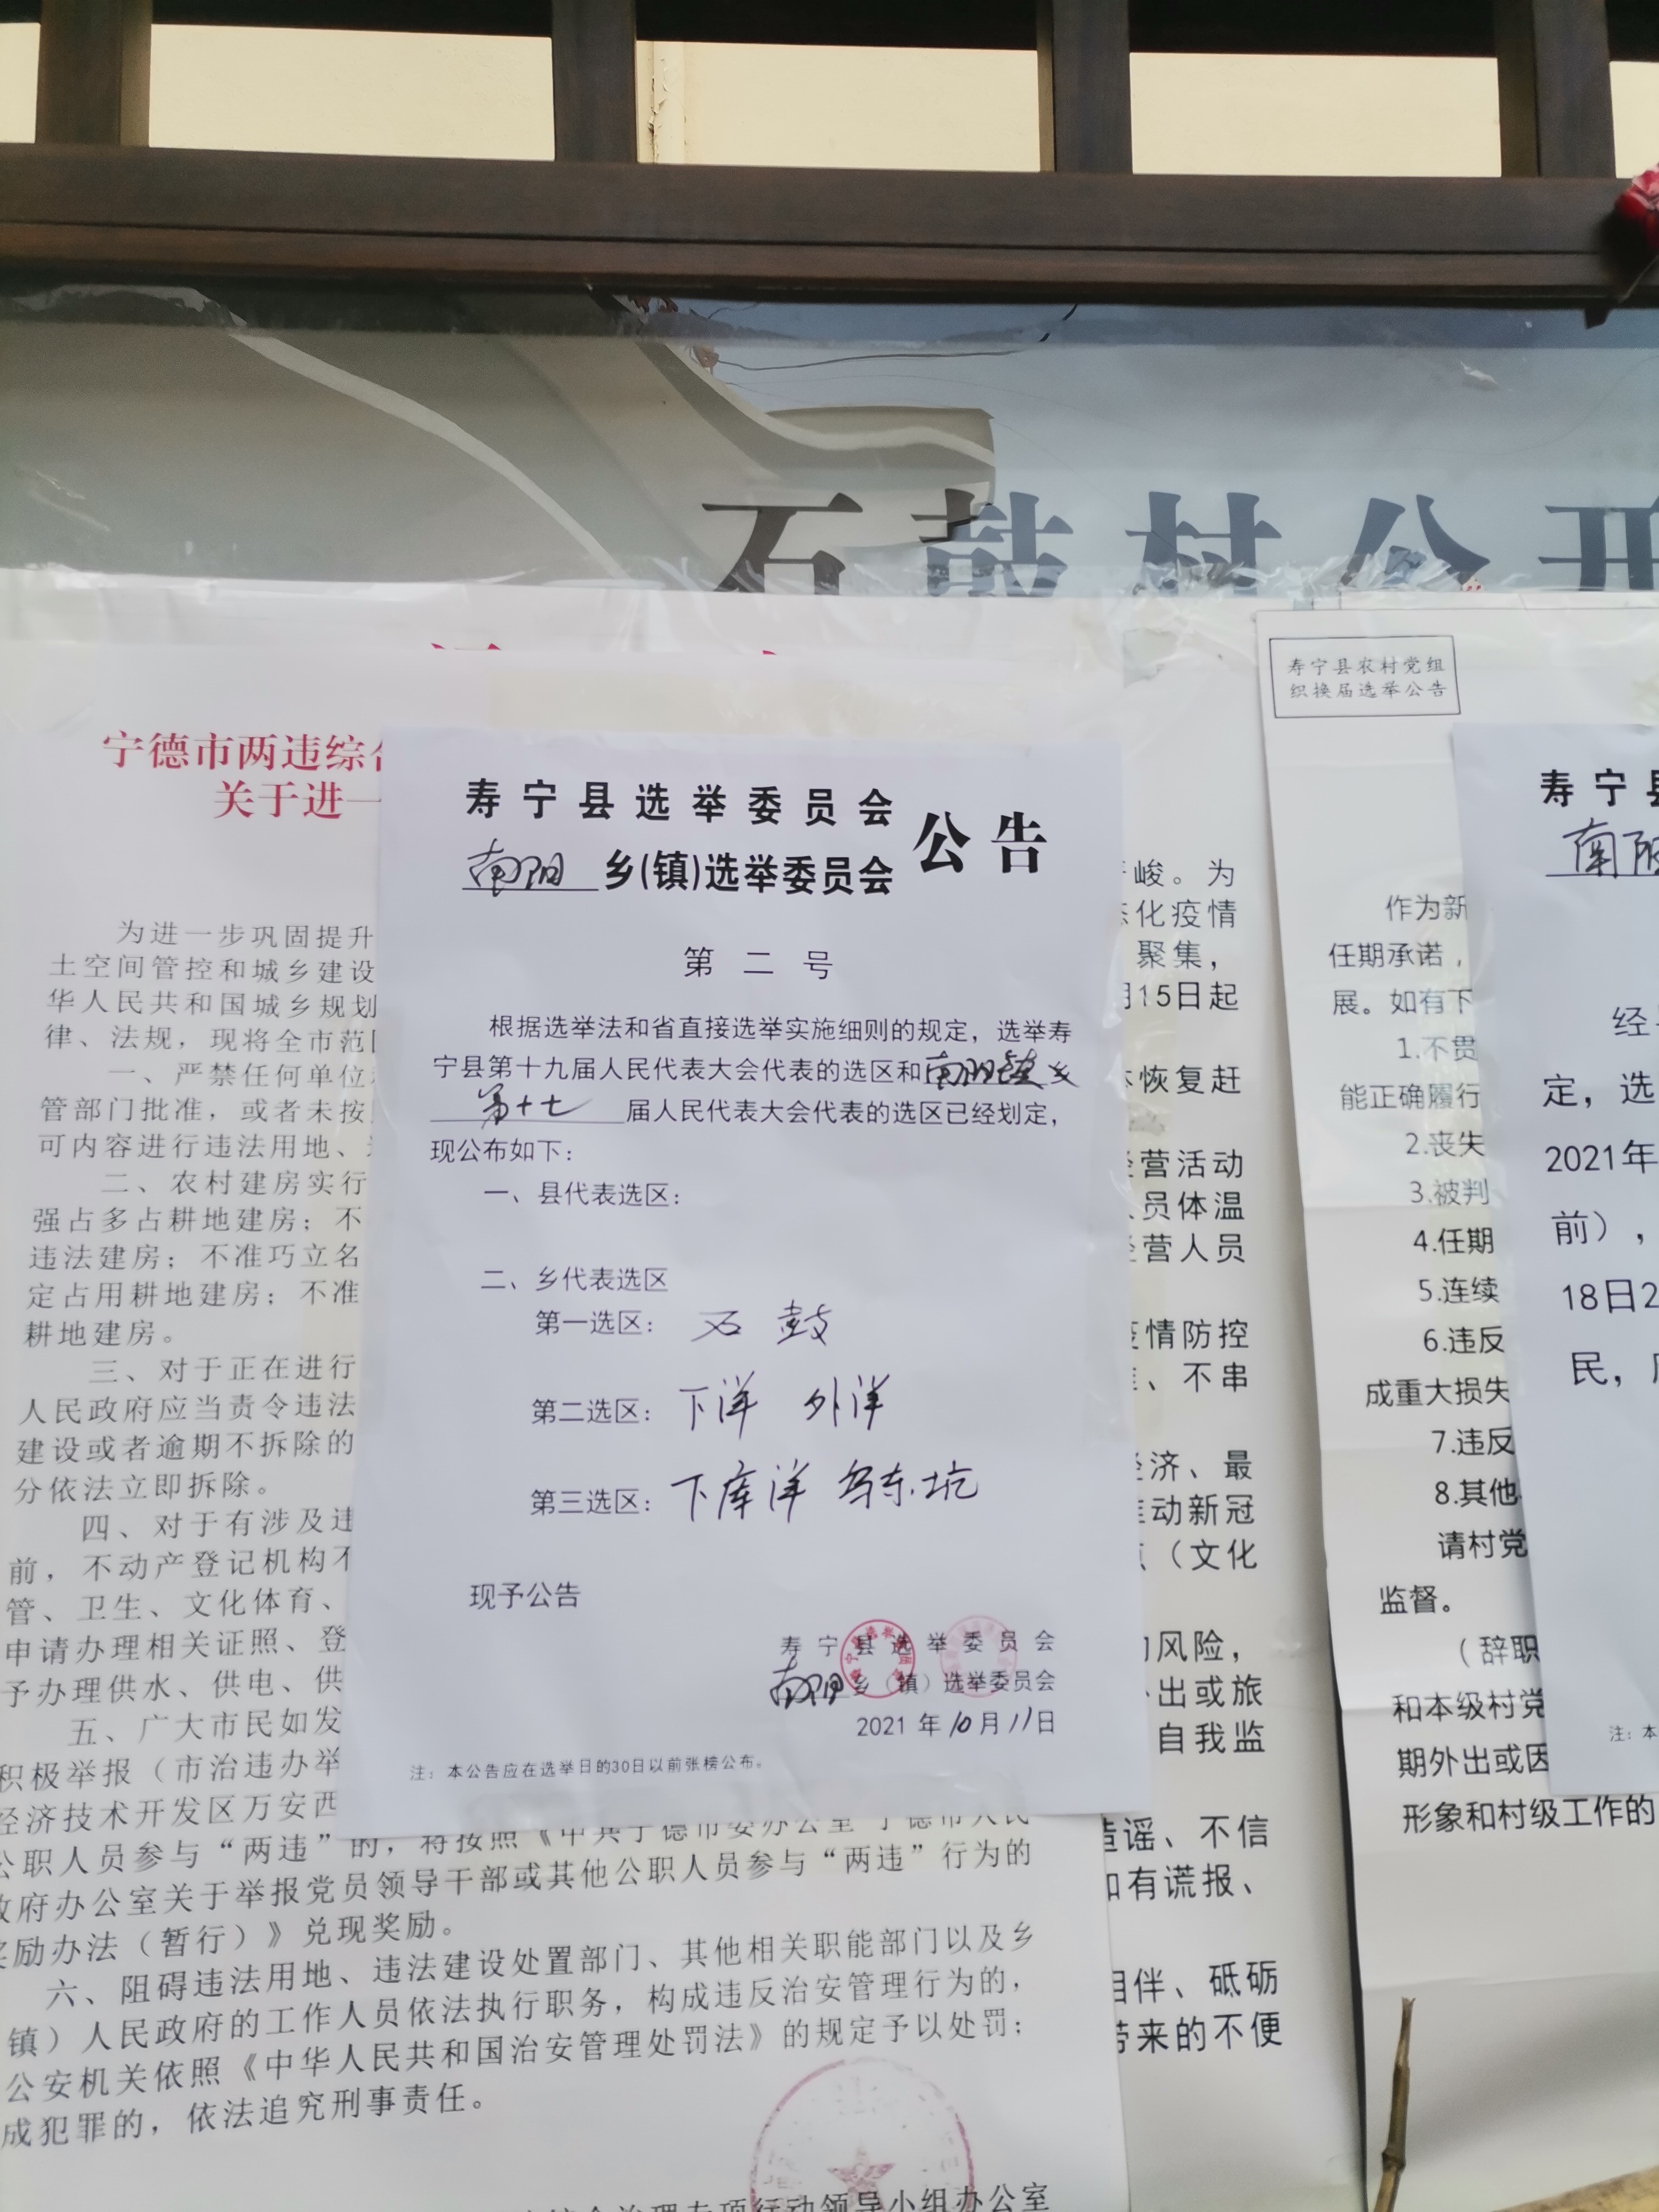 石鼓村公开
宁德市两违综合
关于进一
为进一步巩固提升
土空间管控和城乡建设
华人民共和国城乡规划
律、法规，现将全市范
一、严禁任何单位
管部门批准，或者未按
可内容进行违法用地、
二、农村建房实行
强占多占耕地建房；不
违法建房；不准巧立名
定占用耕地建房；不准
耕地建房。
三、对于正在进行
人民政府应当责令违法
建设或者逾期不拆除的
分依法立即拆除。
四、对于有涉及违
前，不动产登记机构不
管、卫生、文化体育、
申请办理相关证照、登
予办理供水、供电、供
五、广大市民如发
积极举报（市治违办举
经济技术开发区万安西
公职人员参与“两违”的，将按照《中共宁德市委办公室 宁德市人民
政府办公室关于举报党员领导干部或其他公职人员参与“两违”行为的
奖励办法（暂行）》兑现奖励。
六、阻碍违法用地、违法建设处置部门、其他相关职能部门以及乡
镇）人民政府的工作人员依法执行职务，构成违反治安管理行为的，
公安机关依照《中华人民共和国治安管理处罚法》的规定予以处罚；
成犯罪的，依法追究刑事责任。
综合治理专项行动领导小组办公室
寿宁县选举委员会
南阳乡(镇)选举委员会
公告
第二号
根据选举法和省直接选举实施细则的规定，选举寿
宁县第十九届人民代表大会代表的选区和南阳镇乡
第十七届人民代表大会代表的选区已经划定，
现公布如下：
一、县代表选区：
二、乡代表选区
第一选区：石鼓
第二选区：下洋 外洋
第三选区：下库洋 乌东坑
现予公告
寿宁县选举委员会
南阳乡（镇）选举委员会
2021年10月11日
注：本公告应在选举日的30日以前张榜公布。
峻。为
态化疫情
聚集，
月15日起
恢复赶
经营活动
人员体温
经营人员
疫情防控
、不串
经济、最
推动新冠
点（文化
的风险，
外出或旅
自我监
造谣、不信
如有谎报、
相伴、砥砺
带来的不便
寿宁县农村党组
织换届选举公告
作为新
任期承诺，
展。如有下
1.不贯
能正确履行
2.丧失
3.被判
4.任期
5.连续
6.违反
成重大损失
7.违反
8.其他
请村党
监督。
（辞职
和本级村党
期外出或因
形象和村级工作的
寿宁县
南阳
经
定，选
2021年
前），
18日2
民，
注：本